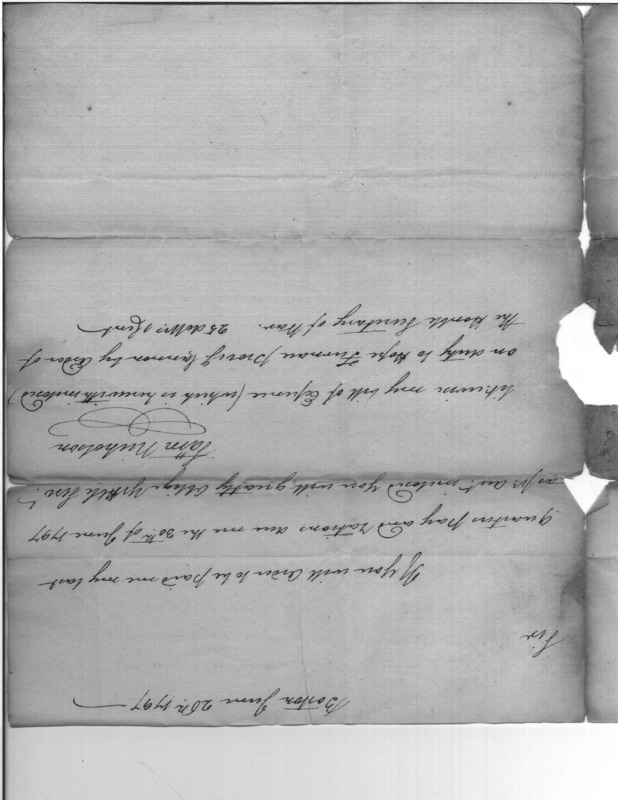 Boston June 26th 1797
Sir
If you will Order to be paid me my last
quarters pay and Rations due me the 30th of June 1797
as pr. Acct. inclosed you will greatly Oblige Yr Hble Servt.
Sam Nicholson
likewise my bill of Expense (which is herewith inclosed)
on duty to Hope Furnace proving Cannon by Order of
the Honble Secretary of War. 25 dollrs